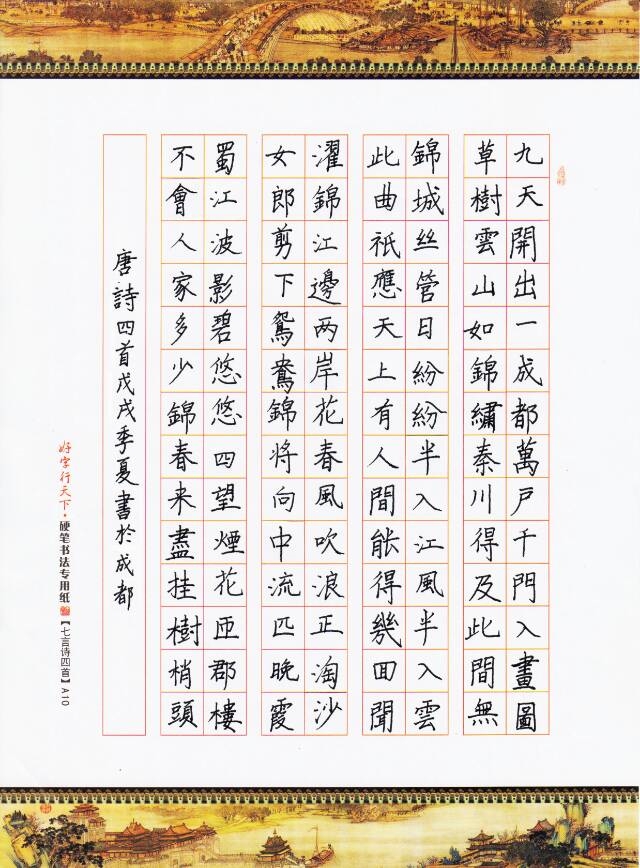 九天開出一成都萬戶千門入畫圖
草樹雲山如錦繡秦川得及此間無
錦城丝管日紛紛半入江風半入雲
此曲祇應天上有人間能得幾回聞
濯錦江邊两岸花春風吹浪正淘沙
女郎剪下鴛鴦錦将向中流匹晚霞
蜀江波影碧悠悠四望煙花匝郡樓
不會人家多少錦春来盡挂樹梢頭
唐詩四首戊戌季夏書於成都
好字行天下·硬笔书法专用纸【七言诗四首】A10